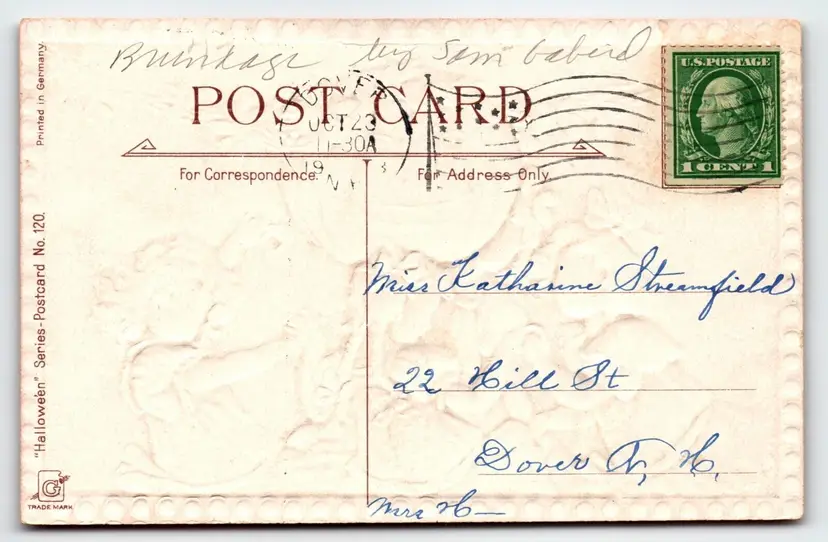 Brundage by Sam Gabriel
POST CARD
DOVER
OCT 23
11-30A
19 3
N.H.
U.S. POSTAGE
1 CENT 1
For Correspondence.
For Address Only.
Miss Katharine Streamfield
22 Hill St
Dover N, H,
Mrs H—
Printed in Germany.
"Halloween" Series-Postcard No. 120.
G
TRADE MARK